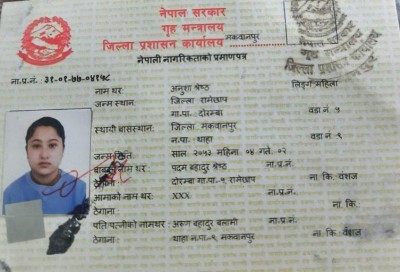 नेपाल सरकार
गृह मन्त्रालय
जिल्ला प्रशासन कार्यालय मकवानपुर
नेपाली नागरिकताको प्रमाणपत्र
ना.प्र.नं. ३१-०१-७७-०४१५८
नाम थर: अनुशा श्रेष्ठ लिङ्गः महिला
जन्म स्थान: जिल्ला रामेछाप
गा.पा. दोरम्बा वडा नं ५
स्थायी बासस्थान: जिल्ला. मकवानपुर
न.पा: थाहा वडा नं. ९
जन्म मिति: साल: २०५२ महिना ०४ गते. ०२
बाबुको नाम थर: पदम बहादुर श्रेष्ठ ना.प्र.नं.
ठेगाना: दोरम्बा गा.पा.-५ रामेछाप ना: कि: वंशज
आमाको नाम थर: XXX ना.प्र.न.
ठेगाना: ना. कि.:
पति/पत्नीको नामथर: अरुण बहादुर बलामी ना.प्र.नं.
ठेगाना: थाहा न.पा-९ मकवानपुर ना: कि: वंशज